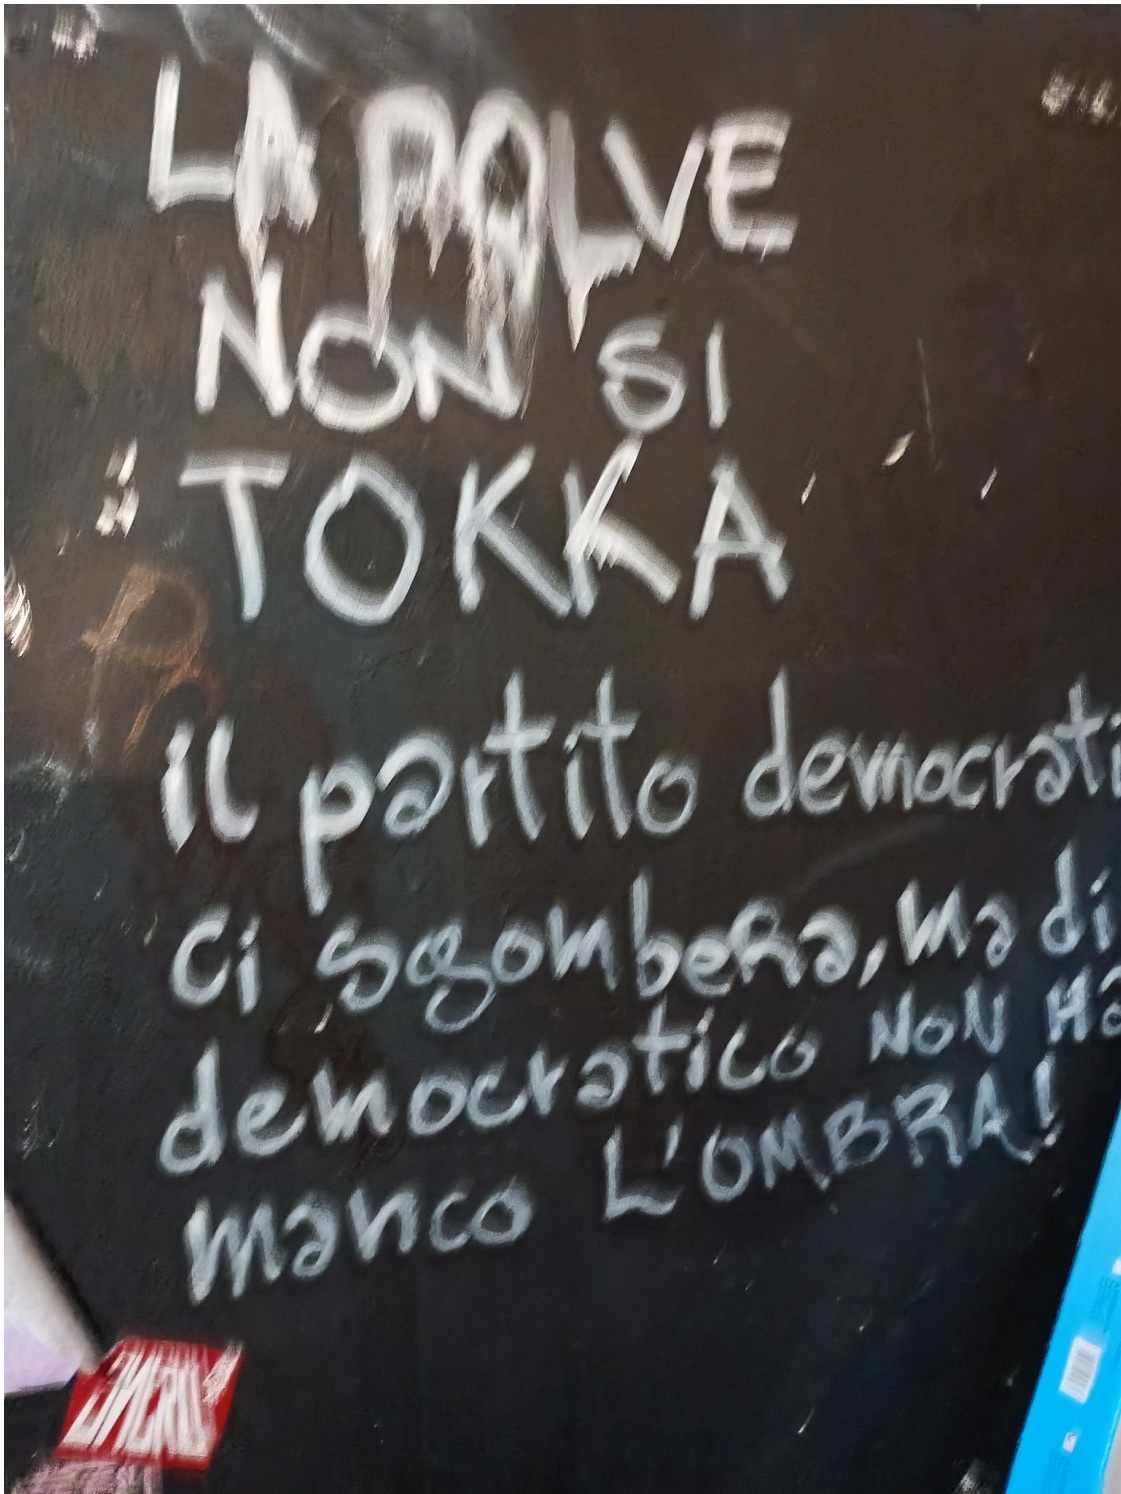 LA POLVE
NON SI
TOKKA
il partito democrati
ci sgombera, ma di
democratico NON Ha
manco L'OMBRA!